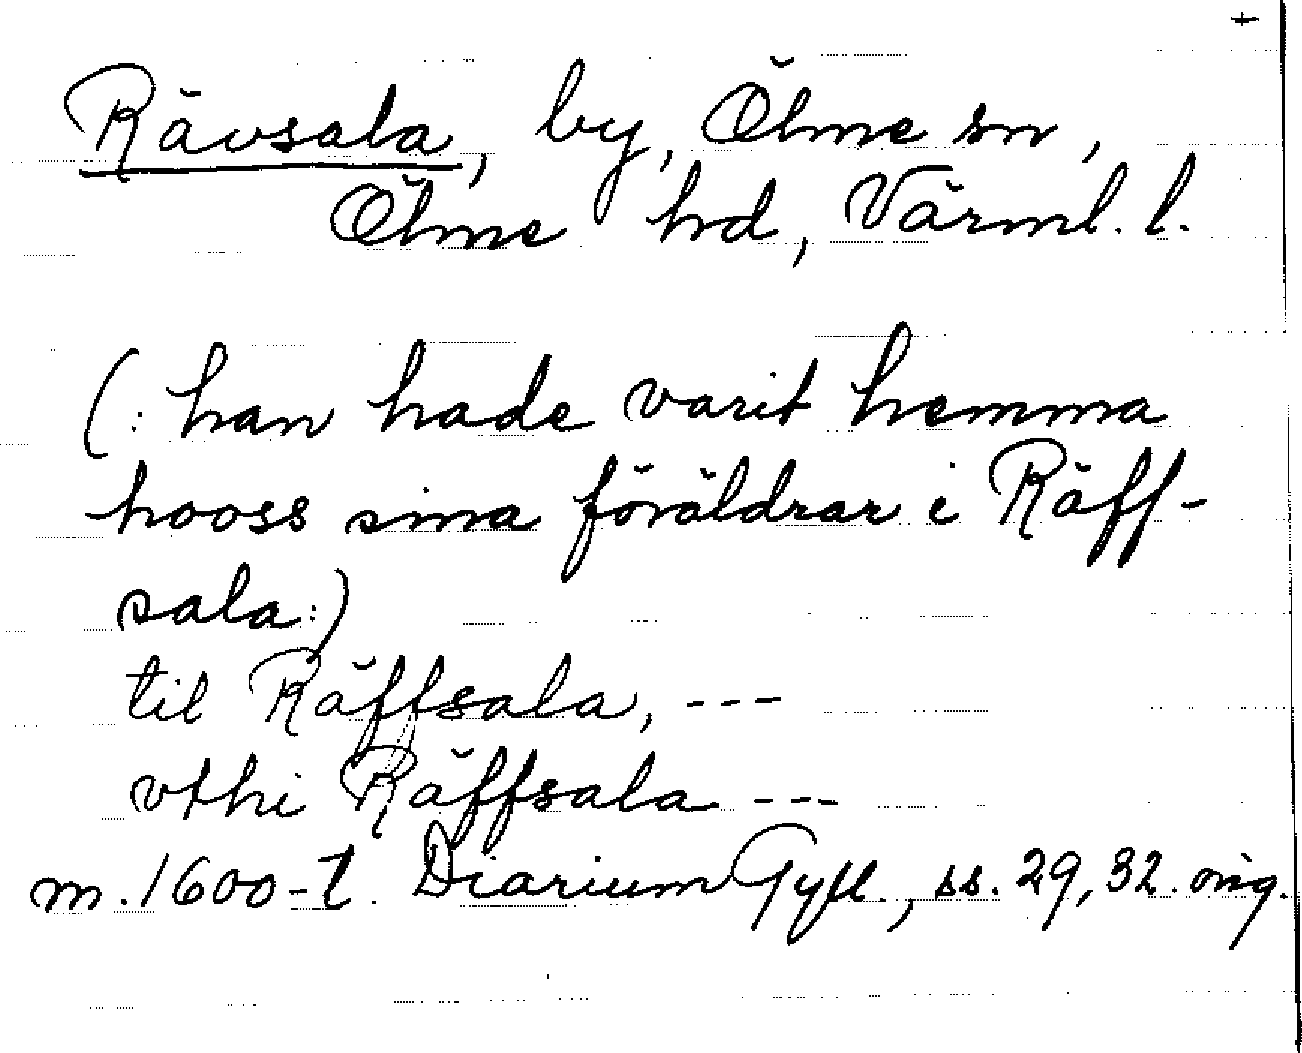 +
Rävsala, by, Ölme sn,
Ölme hd, Värml. l.
(: han hade varit hemma
hooss sina föräldrar i Räff-
sala:)
til Räffsala, ---
vthi Räffsala ---
m. 1600-t. Diarium Gyll., ss. 29, 32. orig.